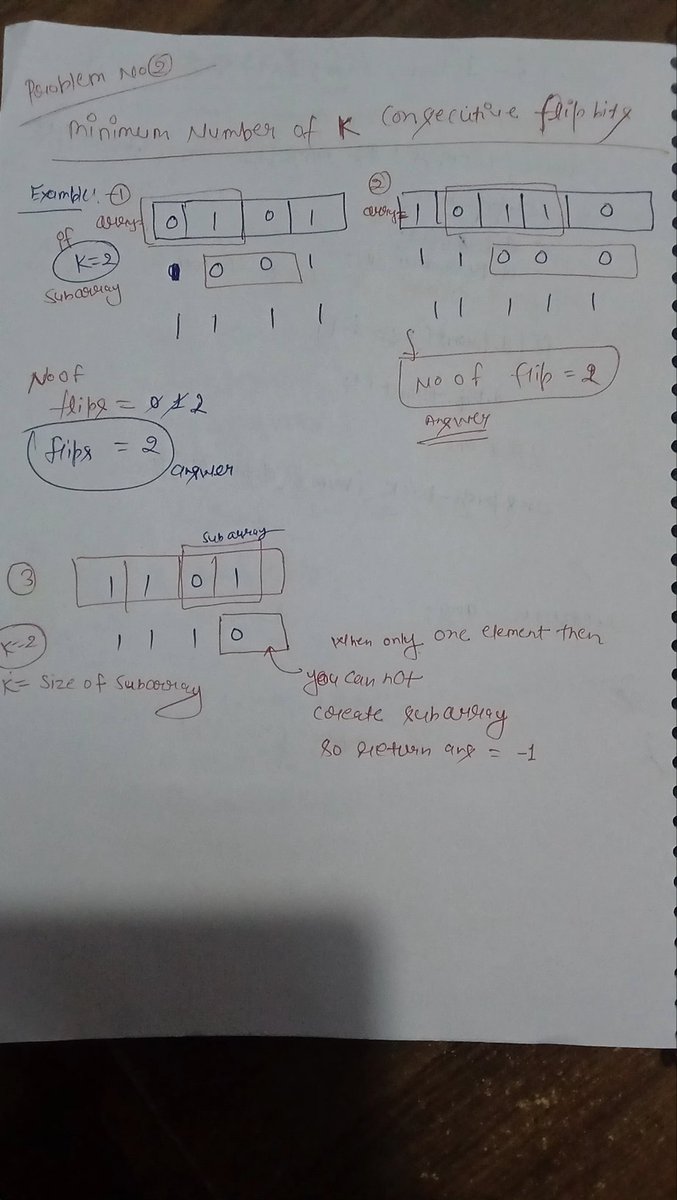 Problem No ②
Minimum Number of K Consecutive flip bits
Example:- ①
array=
0 1 0 1
of
K=2
subarray
0 0 1
1 1 1 1
No of
flips = 0 1 2
flips = 2
answer
②
array=
1 0 1 1 0
1 1 0 0 0
1 1 1 1 1
No of flip = 2
Answer
③
subarray
1 1 0 1
K=2
1 1 1 0
K= Size of Subarray
When only one element then
you can not
create subarray
so return ans = -1